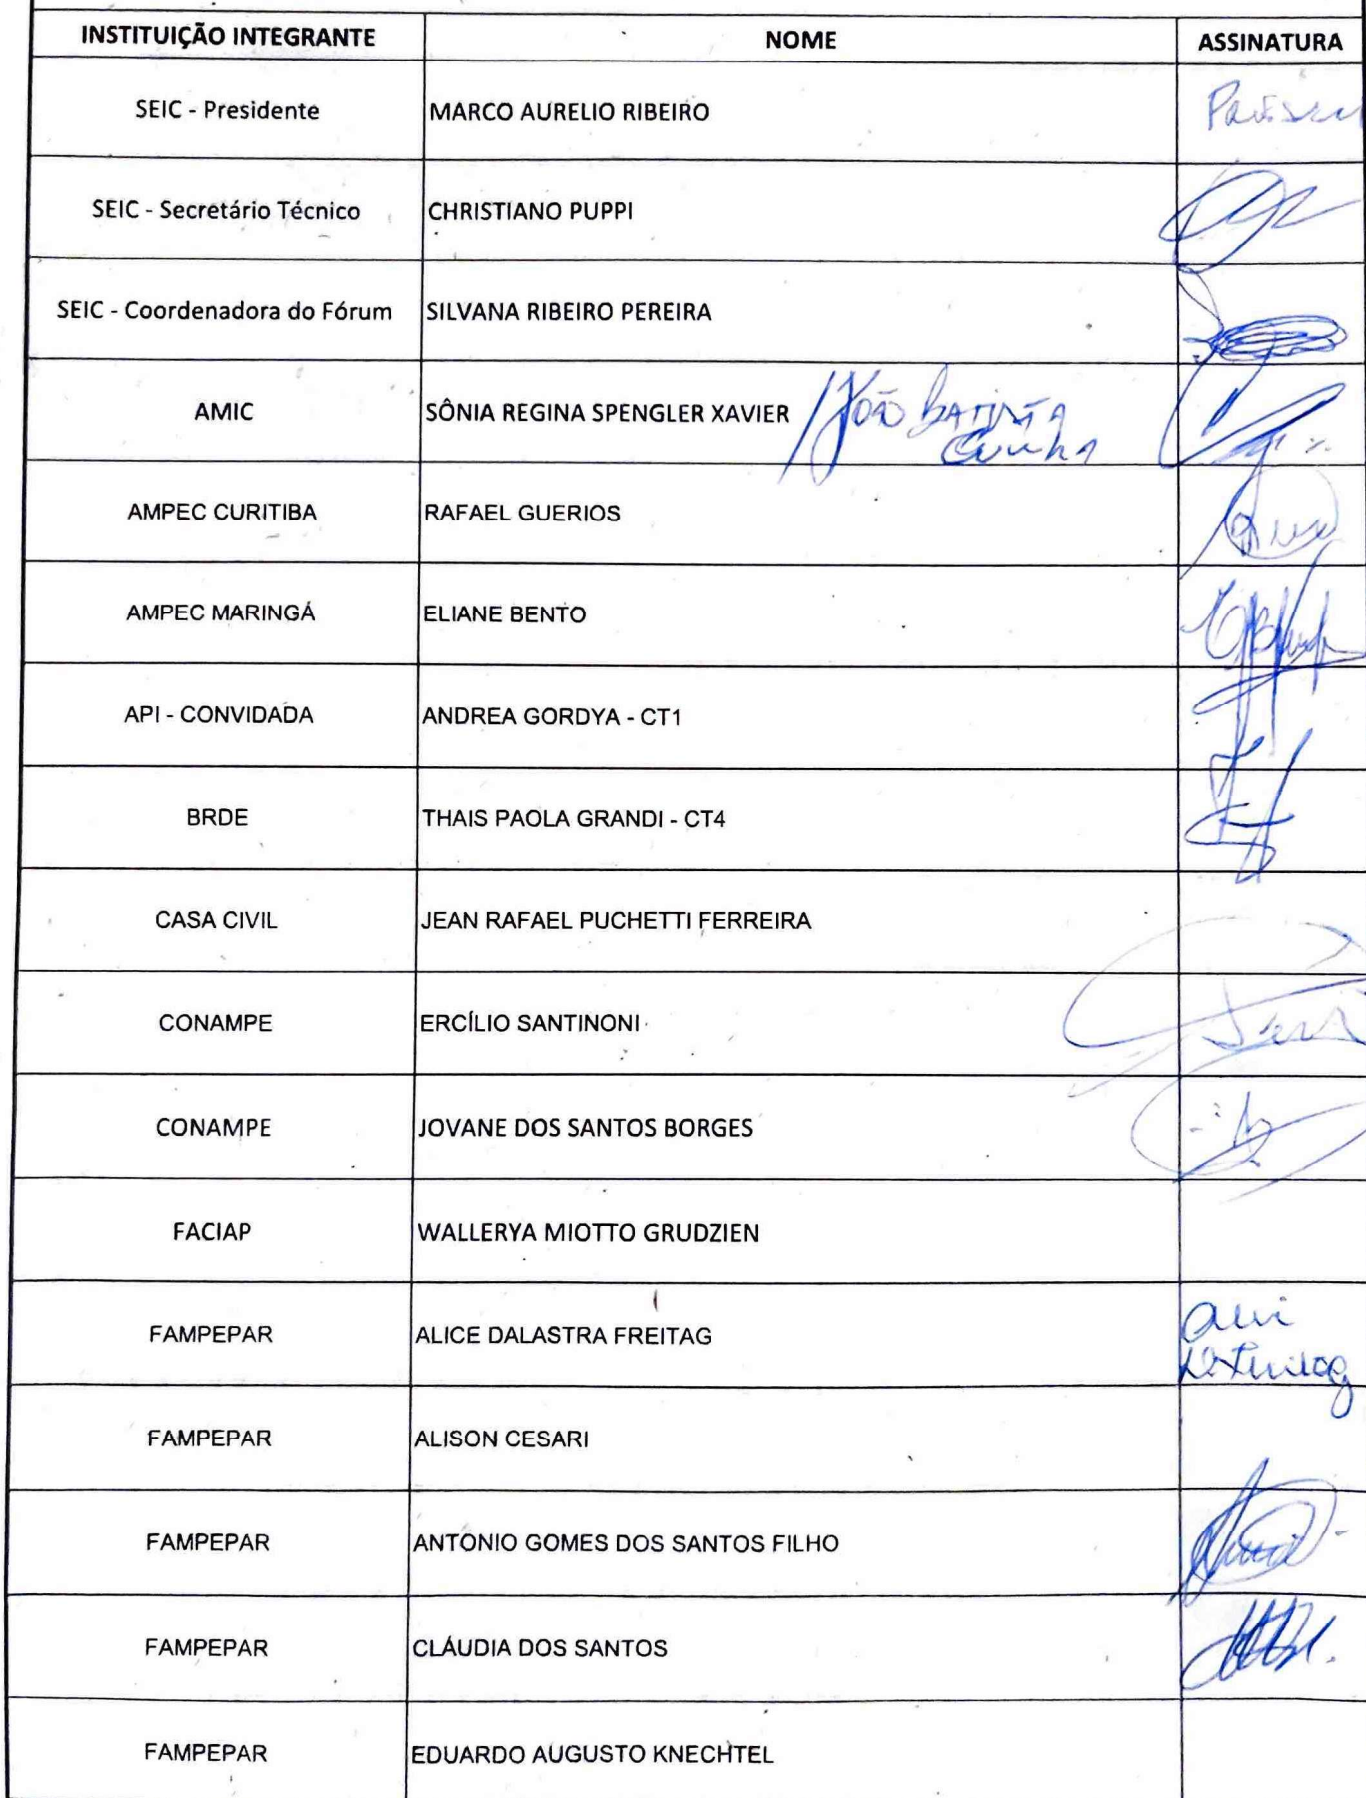 INSTITUIÇÃO INTEGRANTE NOME ASSINATURA
SEIC - Presidente MARCO AURELIO RIBEIRO
SEIC - Secretário Técnico CHRISTIANO PUPPI
SEIC - Coordenadora do Fórum SILVANA RIBEIRO PEREIRA
AMIC SÔNIA REGINA SPENGLER XAVIER / JOÃO BATISTA
Cunha
AMPEC CURITIBA RAFAEL GUERIOS
AMPEC MARINGÁ ELIANE BENTO
API - CONVIDADA ANDREA GORDYA - CT1
BRDE THAIS PAOLA GRANDI - CT4
CASA CIVIL JEAN RAFAEL PUCHETTI FERREIRA
CONAMPE ERCÍLIO SANTINONI
CONAMPE JOVANE DOS SANTOS BORGES
FACIAP WALLERYA MIOTTO GRUDZIEN
FAMPEPAR ALICE DALASTRA FREITAG
FAMPEPAR ALISON CESARI
FAMPEPAR ANTONIO GOMES DOS SANTOS FILHO
FAMPEPAR CLÁUDIA DOS SANTOS
FAMPEPAR EDUARDO AUGUSTO KNECHTEL